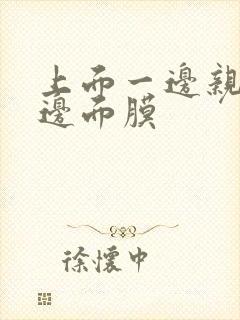 上而一邊親
邊而膜
徐懷中